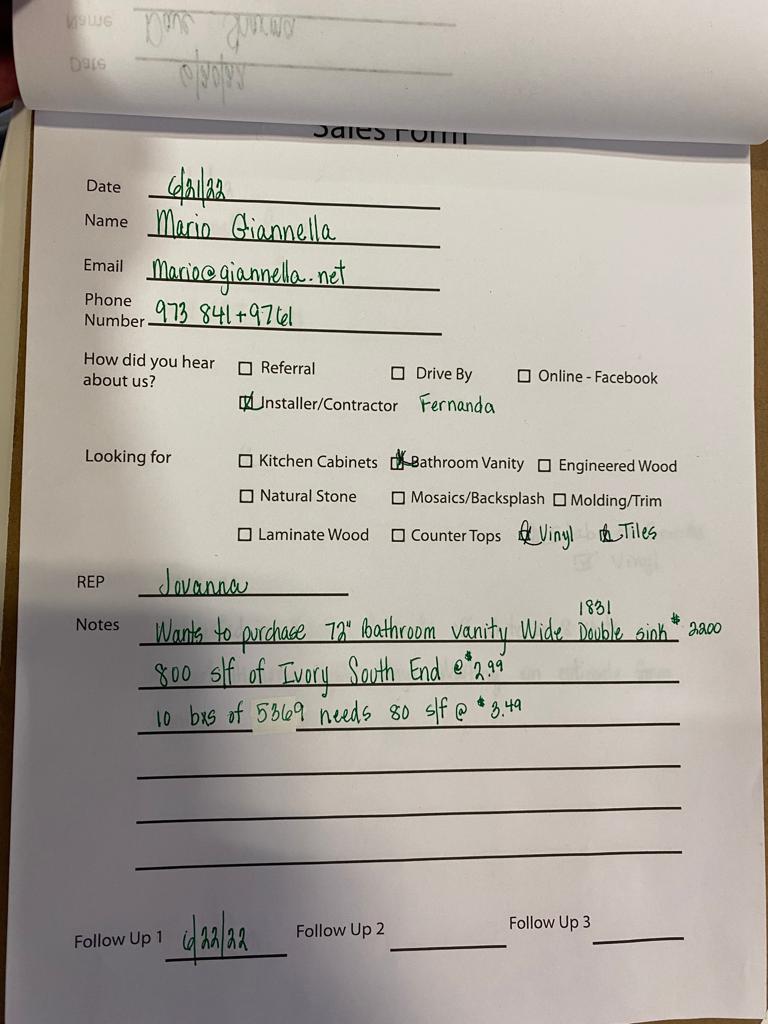 Name Dave Sharma
Date 6/20/22
Sales Form
Date 6/21/22
Name Mario Giannella
Email Mario@giannella.net
Phone
Number 973 841+9761
How did you hear
about us?
Referral Drive By Online - Facebook
Installer/Contractor Fernanda
Looking for
Kitchen Cabinets Bathroom Vanity Engineered Wood
Natural Stone Mosaics/Backsplash Molding/Trim
Laminate Wood Counter Tops Vinyl Tiles
REP Jovanna
1831
Notes Wants to purchase 72" bathroom vanity Wide Double sink $2200
800 s/f of Ivory South End @ $2.99
10 bxs of 5369 needs 80 s/f @ $3.49
Follow Up 1 6/22/22 Follow Up 2 Follow Up 3